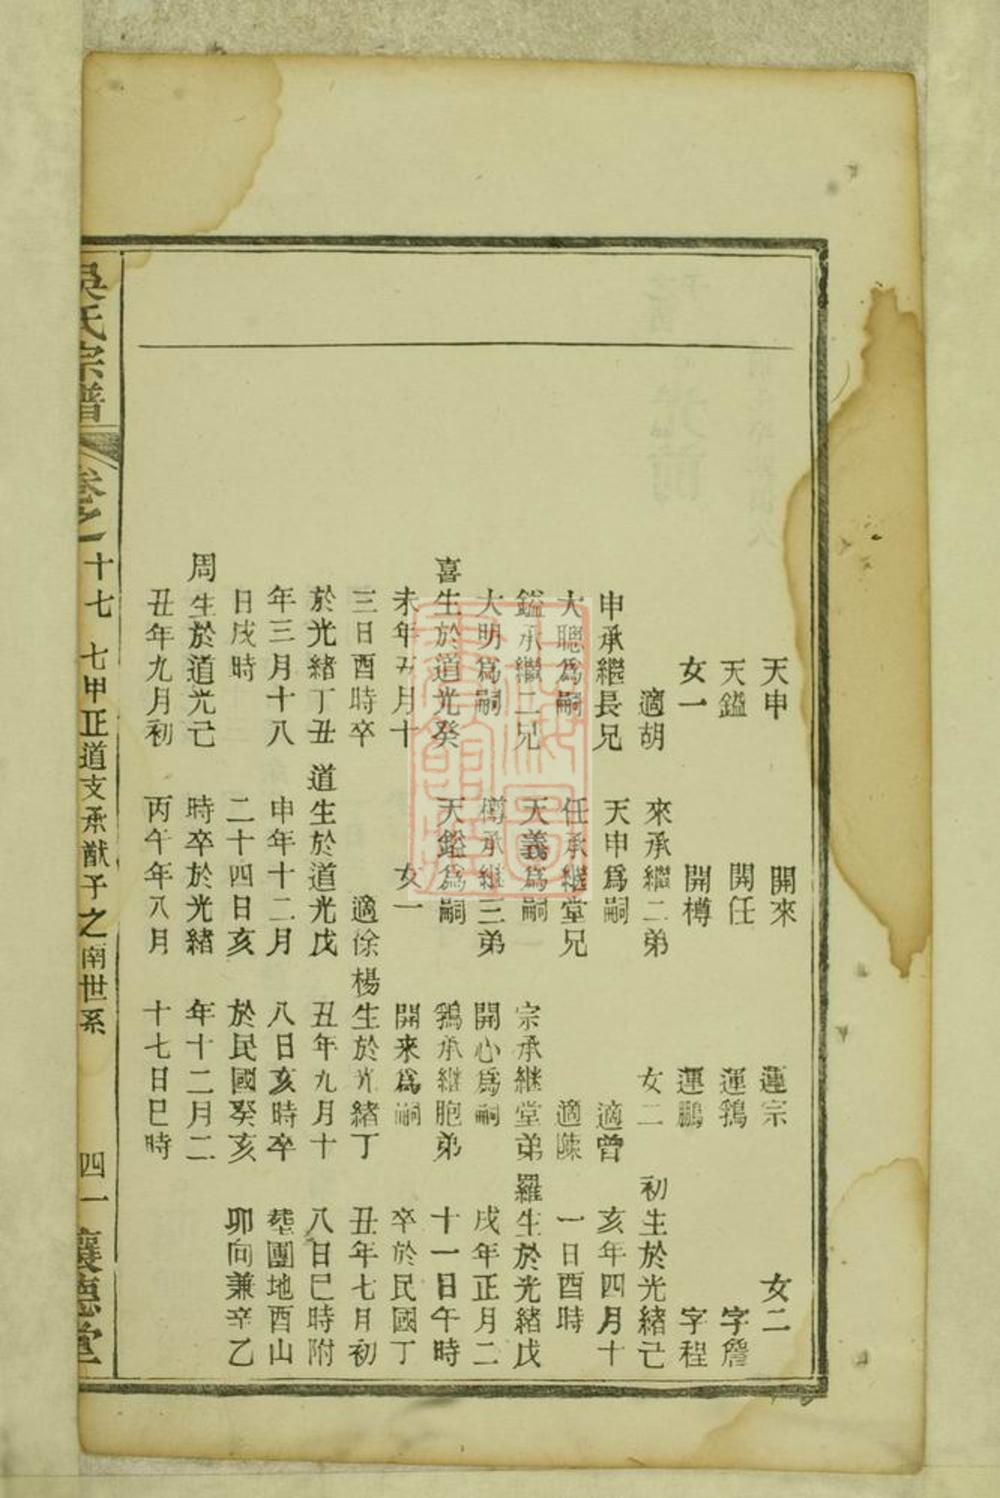 天申
天鎰
女一
適胡
申承繼長兄
大聰爲嗣
鎰承繼二兄
大明爲嗣
喜生於道光癸
未年五月十
三日酉時卒
於光緒丁丑
年三月十八
日戌時
周生於道光己
丑年九月初
開來
開任
開樽
來承繼二弟
天申爲嗣
任承继堂兄
天義爲嗣
樽承继三弟
天鎰爲嗣
女一
適徐
道生於道光戊
申年十二月
二十四日亥
時卒於光緒
丙午年八月
運宗
運鵷
運鵬
女二
適曾
適陳
宗承継堂弟
開心爲嗣
鵷承継胞弟
開来爲嗣
楊生於光緒丁
丑年九月十
八日亥時卒
於民國癸亥
年十二月二
十七日巳時
女二
字詹
字程
初生於光緒己
亥年四月十
一日酉時
羅生於光緒戊
戌年正月二
十一日午時
卒於民國丁
丑年七月初
八日巳時附
塟團地酉山
卯向兼辛乙
吳氏宗譜
卷之一
十七 七甲正道支承猷子之南世系
四一
讓德堂
上海圖書館藏